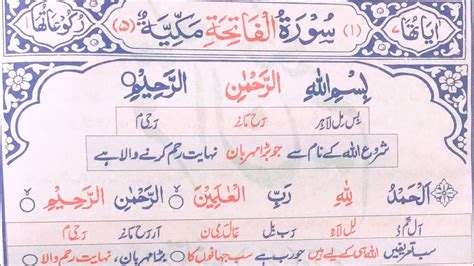 اٰیَاتُهَا ٧ (١) سُوْرَةُ الْفَاتِحَةِ مَكِّيَّةٌ (٥) رُكُوْعَاتُهَا
بِسْمِ اللّٰهِ الرَّحْمٰنِ الرَّحِيْمِ
بِس مِل لَاہِر رَح مَانِر رَحِی م
شروع اللہ کے نام سے جو بڑا مہربان نہایت رحم کرنے والا ہے
اَلْحَمْدُ لِلّٰهِ رَبِّ الْعٰلَمِيْنَ الرَّحْمٰنِ الرَّحِيْمِ
لِل لَاہ رَب بِل عَالَ مِی ن رَح مَانِر رَحِی م
سب تعریفیں اللہ ہی کے لیے ہیں جو رب ہے سب جہانوں کا بڑا مہربان، نہایت رحم والا